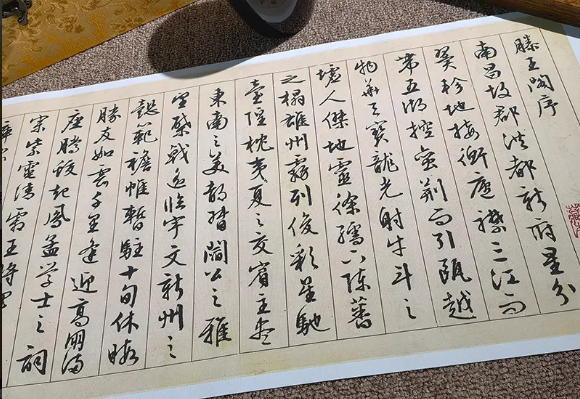 滕王閣序
南昌故郡洪都新府星分
翼軫地接衡廬襟三江而
帶五湖控蛮荆而引甌越
物華天寶龍光射牛斗之
墟人傑地靈徐孺下陳蕃
之榻雄州霧列俊彩星馳
臺隍枕夷夏之交賓主盡
東南之美都督閻公之雅
望棨戟遥臨宇文新州之
懿範襜帷暫駐十旬休暇
勝友如雲千里逢迎高朋滿
座騰蛟起鳳孟学士之詞
宗紫電清霜王將軍